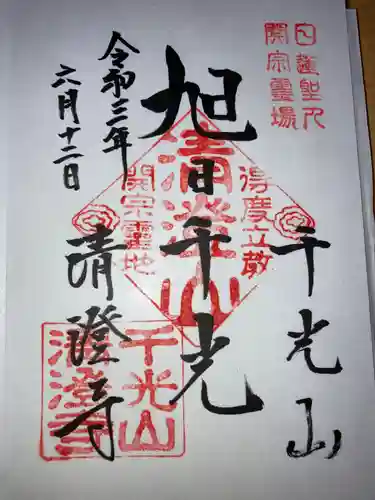 日蓮聖人
開宗靈場
千光山
旭日千光
清澄山
得度立教
開宗靈地
令和三年
六月十二日
清澄寺
千光山
清澄寺